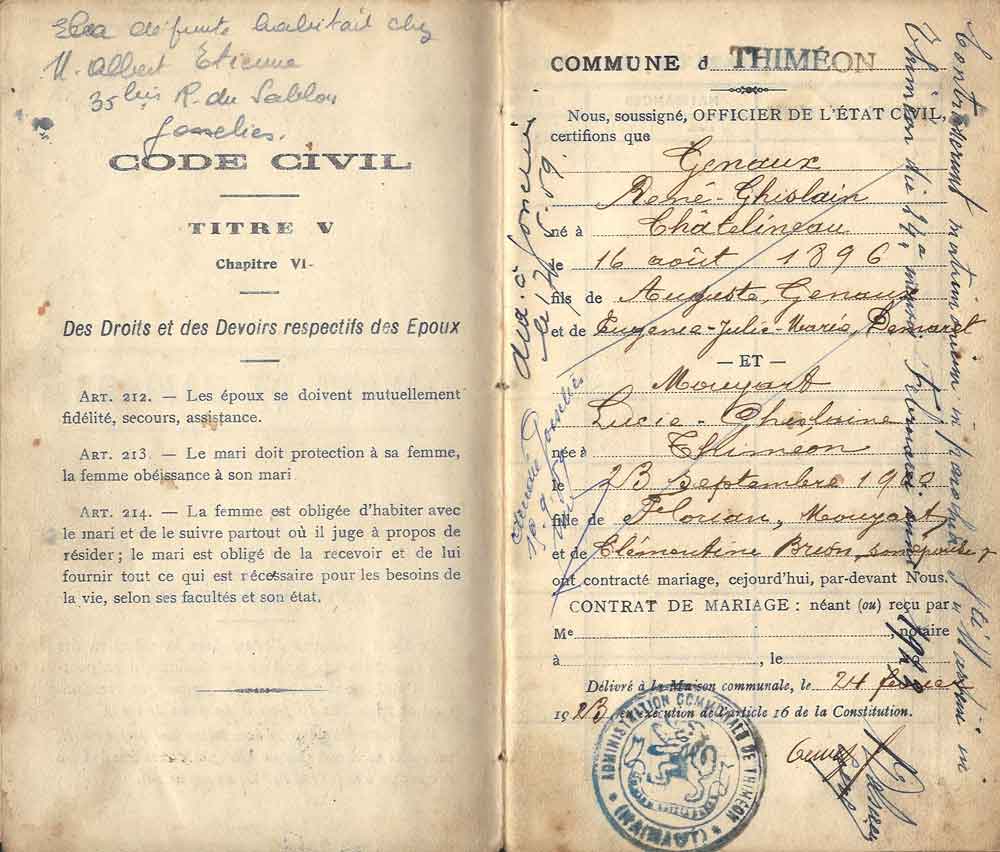 défunte habitait chez
M. Albert Etienne
35 bis R. du Sablon
Gosselies.
CODE CIVIL
TITRE V
Chapitre VI-
Des Droits et des Devoirs respectifs des Epoux
ART. 212. — Les époux se doivent mutuellement
fidélité, secours, assistance.
ART. 213. — Le mari doit protection à sa femme,
la femme obéissance à son mari
ART. 214. — La femme est obligée d'habiter avec
le mari et de le suivre partout où il juge à propos de
résider ; le mari est obligé de la recevoir et de lui
fournir tout ce qui est nécessaire pour les besoins de
la vie, selon ses facultés et son état.
COMMUNE d THIMÉON
Nous, soussigné, OFFICIER DE L'ÉTAT CIVIL,
certifions que
Genaux
René-Ghislain
né à Châtelineau
le 16 août 1896
fils de Auguste, Genaux
et de Eugénie-Julie-Marie, Demaret
— ET —
Mouyart
Lucie-Ghislaine
née à Thiméon
le 23 septembre 1900
fille de Florian, Mouyart
et de Clémentine Brion, son épouse
ont contracté mariage, cejourd'hui, par-devant Nous.
CONTRAT DE MARIAGE : néant (ou) reçu par
Me , notaire
à , le
Délivré à la Maison communale, le 24 février
1923, en exécution de l'article 16 de la Constitution.
ADMINISTRATION COMMUNALE DE THIMÉON
(HAINAUT)
Contraxerunt matrimonium in parochia
Thiméon die 24a mensis Februarii anni
1923